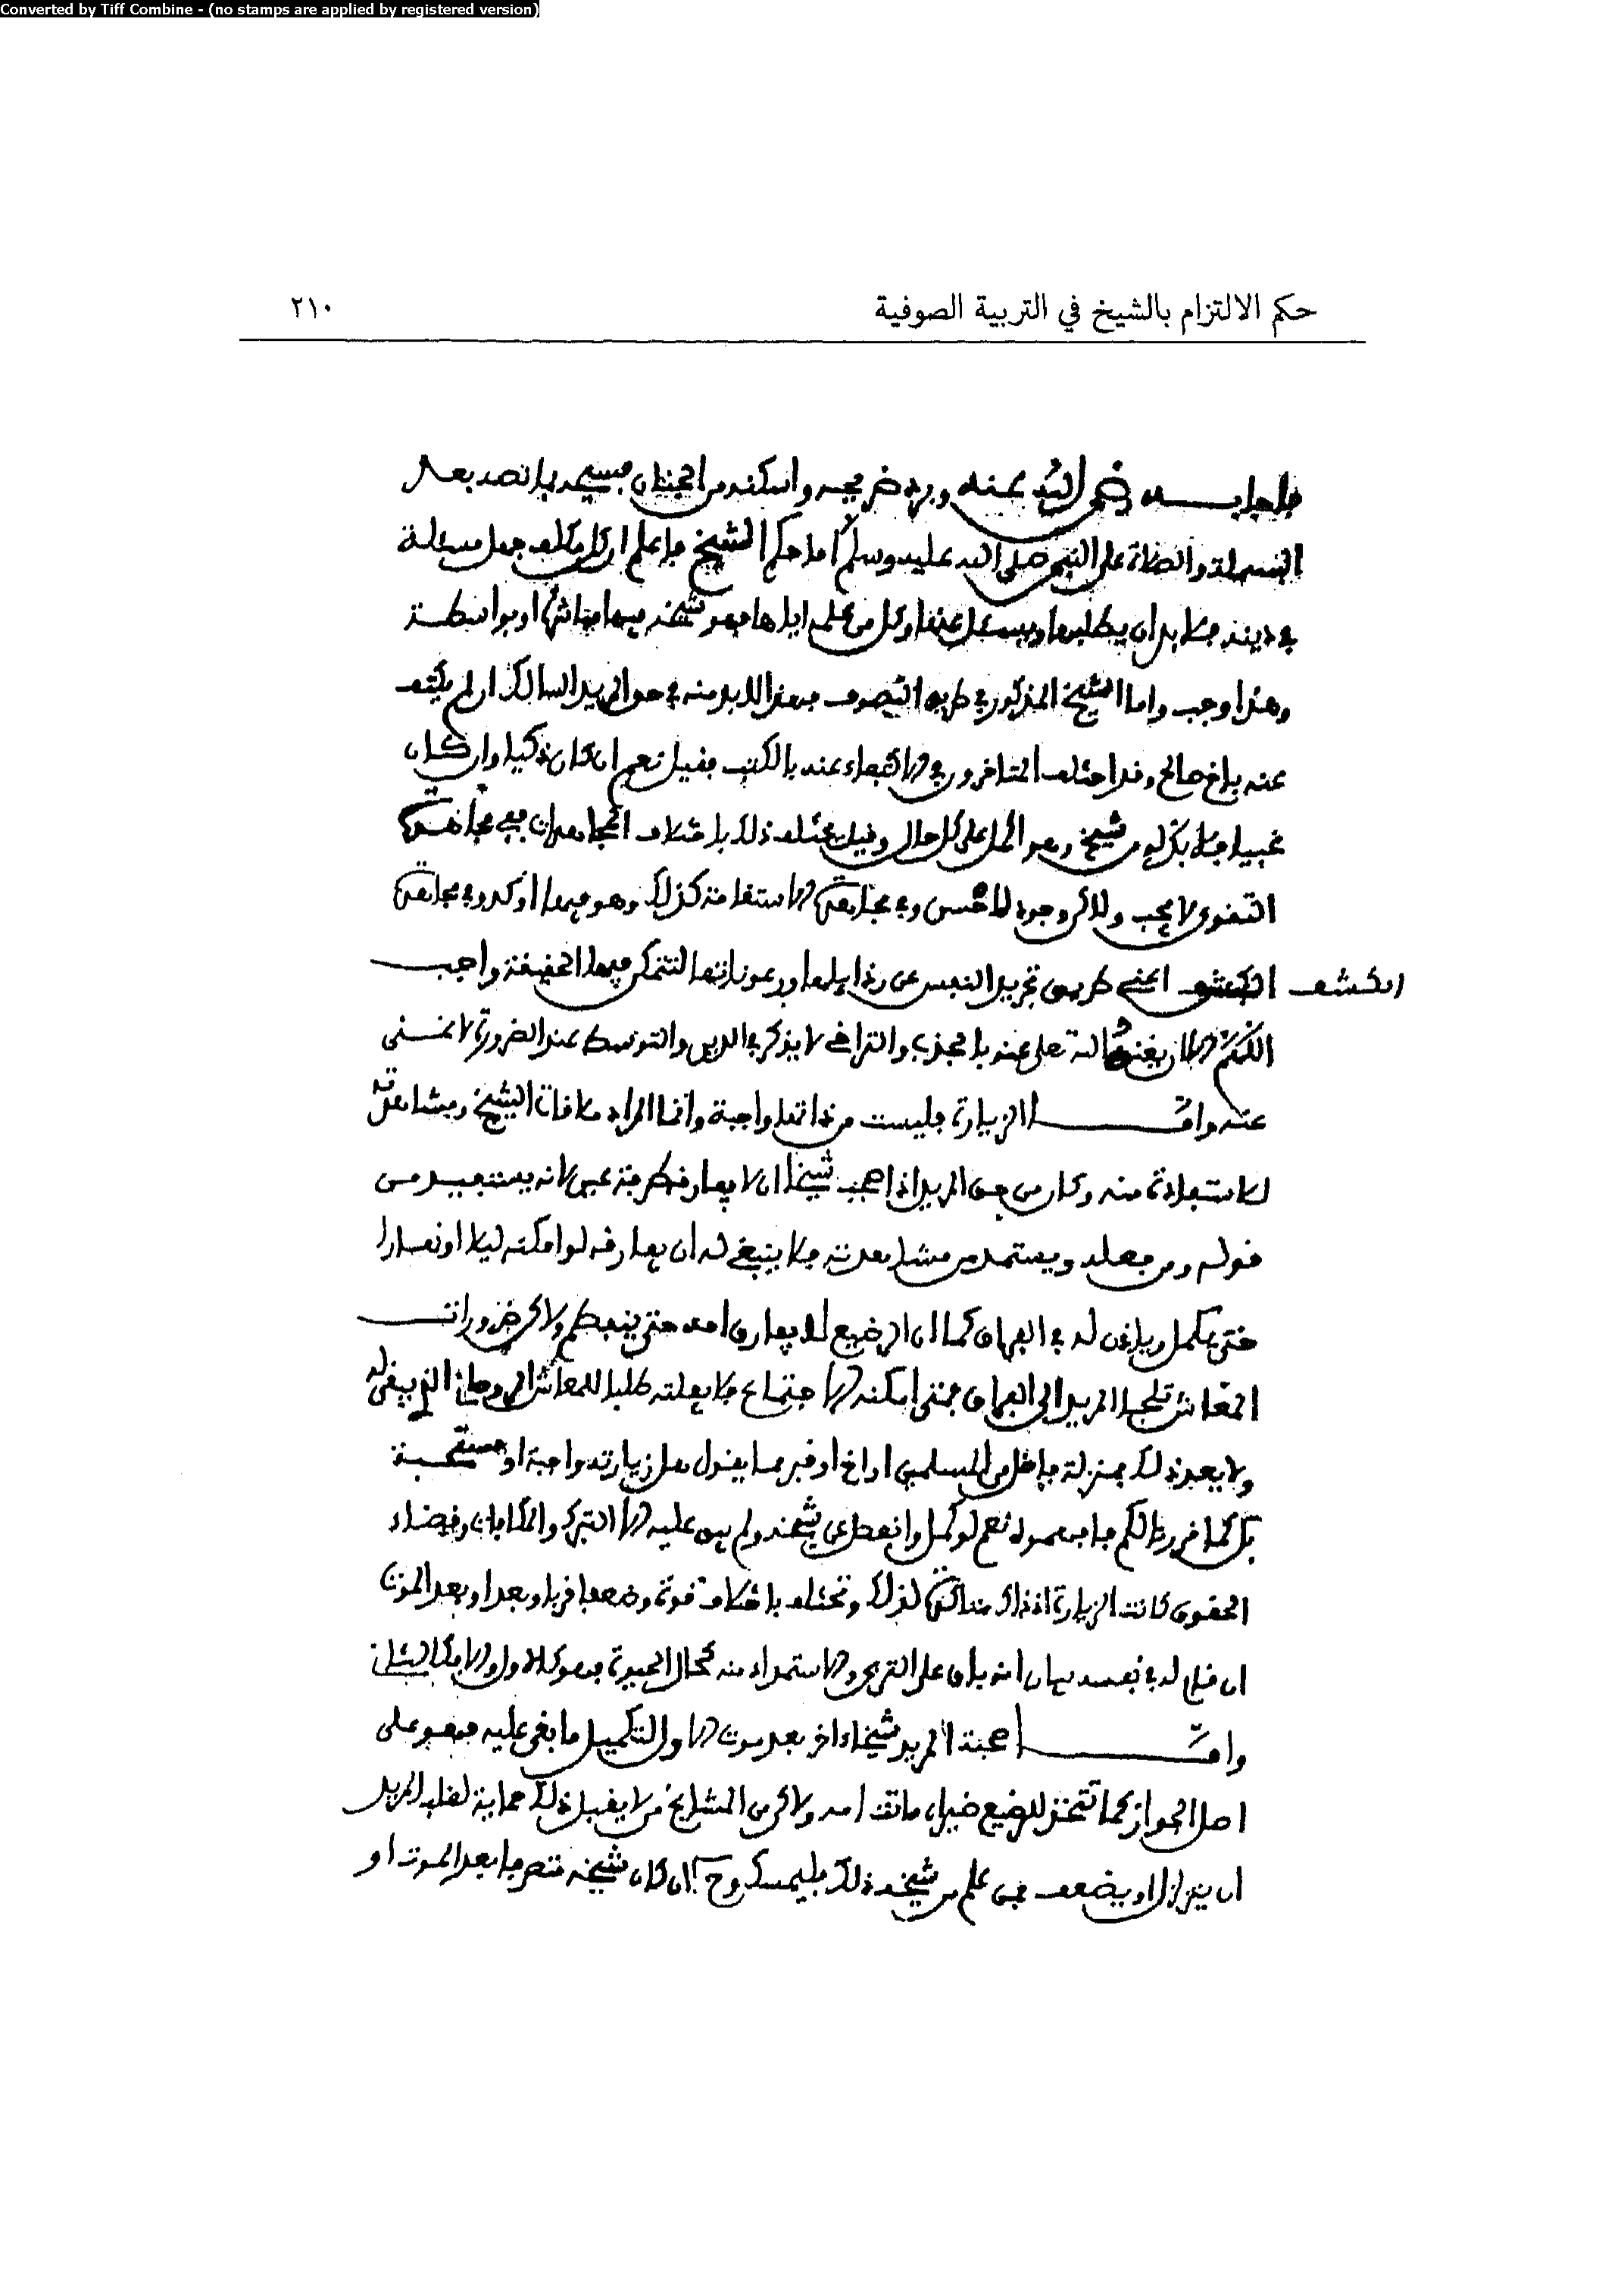 Converted by Tiff Combine - (no stamps are applied by registered version)
حكم الالتزام بالشيخ في التربية الصوفية
٢١٠
فاجابه رضي الله عنه وبرد ضريحه واسكنه من الجنان فسيحه بما نصه بعد
البسملة والصلاة على النبي صلى الله عليه وسلم اما حكم الشيخ فاعلم ان كل مكلف جهل مسئلة
في دينه فلا بد ان يطلبها ويسئل عنها وكل من علمه اياها فهو شيخه فيها مباشرة او بواسطة
وهذا وجب واما الشيخ المذكور في طريق التصوف فهذا لابد منه في حق المريد السالك ان لم يكتف
عنه باخ صالح وقد اختلف المتاخرون في الاكتفاء عنه بالكتب فقيل نعم ان كان ذكيا وان كان
غبيا فلا بد له من شيخ وهو اكمل على كل حال وقيل يختلف ذلك باختلاف المجاهدات ففي مجاهدة
التقوى لا يجب ولاكن وجوده احسن وفي مجاهدة الاستقامة كذلك وهو فيها اوكد وفي مجاهدة
الكشف اعني طريق تجريد النفس عن رذايلها ورعوناتها لتتمكن فيها الحقيقة واجب
الكشف
اللهم الا ان يغنيه الله تعلى عنه بالجذب والتراخي لا يذكر في الدين والتوسط عند الضرورة لا غنى
عنه وامـا الزيارة فليست من ذاتها واجبة وانما المراد ملاقاة الشيخ ومشاهدته
للاستفادة منه وكان من حق المريد اذا صحب شيخا ان لا يفارقه طرفة عين لانه يستفيد من
قوله ومن فعله ويستمد من مشاهدته فلا ينبغي له ان يفارقه لو امكنه ليلا او نهارا
حتى يكمل وياذن له في الفراق كما ان الرضيع لا يفارق امه حتى ينفطم ولاكن ضرورات
المعاش تلجئ المريد الى الفراق فمتى امكنه الاجتماع فلا يفلته طلبا للمعاش الروحاني الذي يبقى له
ولا يعد ذلك بمنزلة فاضل من المسلمين او اخ او قبر مما يقول هل زيارته واجبة او مستحبة
بل كما قررنا لكم فافهموه نعم لو كمل وانفصل عن شيخه ولم يبق عليه الا التبرك والمكافات وقضاء
الحقوق كانت الزيارة اذ ذاك مناسبة لذلك وتختلف باختلاف قوة وضعفا قربا وبعدا وبعد الموت
ان قام له في نفسه برهان انه باق على التربية والاستمداد منه كحال الحيوة فهو كالاول والا فكالثاني
وامـا صحبة المريد شيخا ءاخر بعد موت الاول لتكميل ما بقي عليه فهو على
اصل الجواز كما تتخذ للرضيع ضيرا ماتت امه ولاكن من المشايخ من لا يقبل ذلك حماية لقلب المريد
ان يتزلزل او يضعف فمن علم من شيخه ذلك فليمسك وح ان كان شيخه متصرفا بعد الموت او